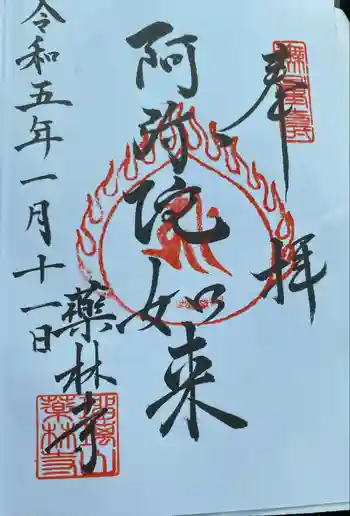 奉拝
阿弥陀如来
令和五年一月十一日
藥林寺